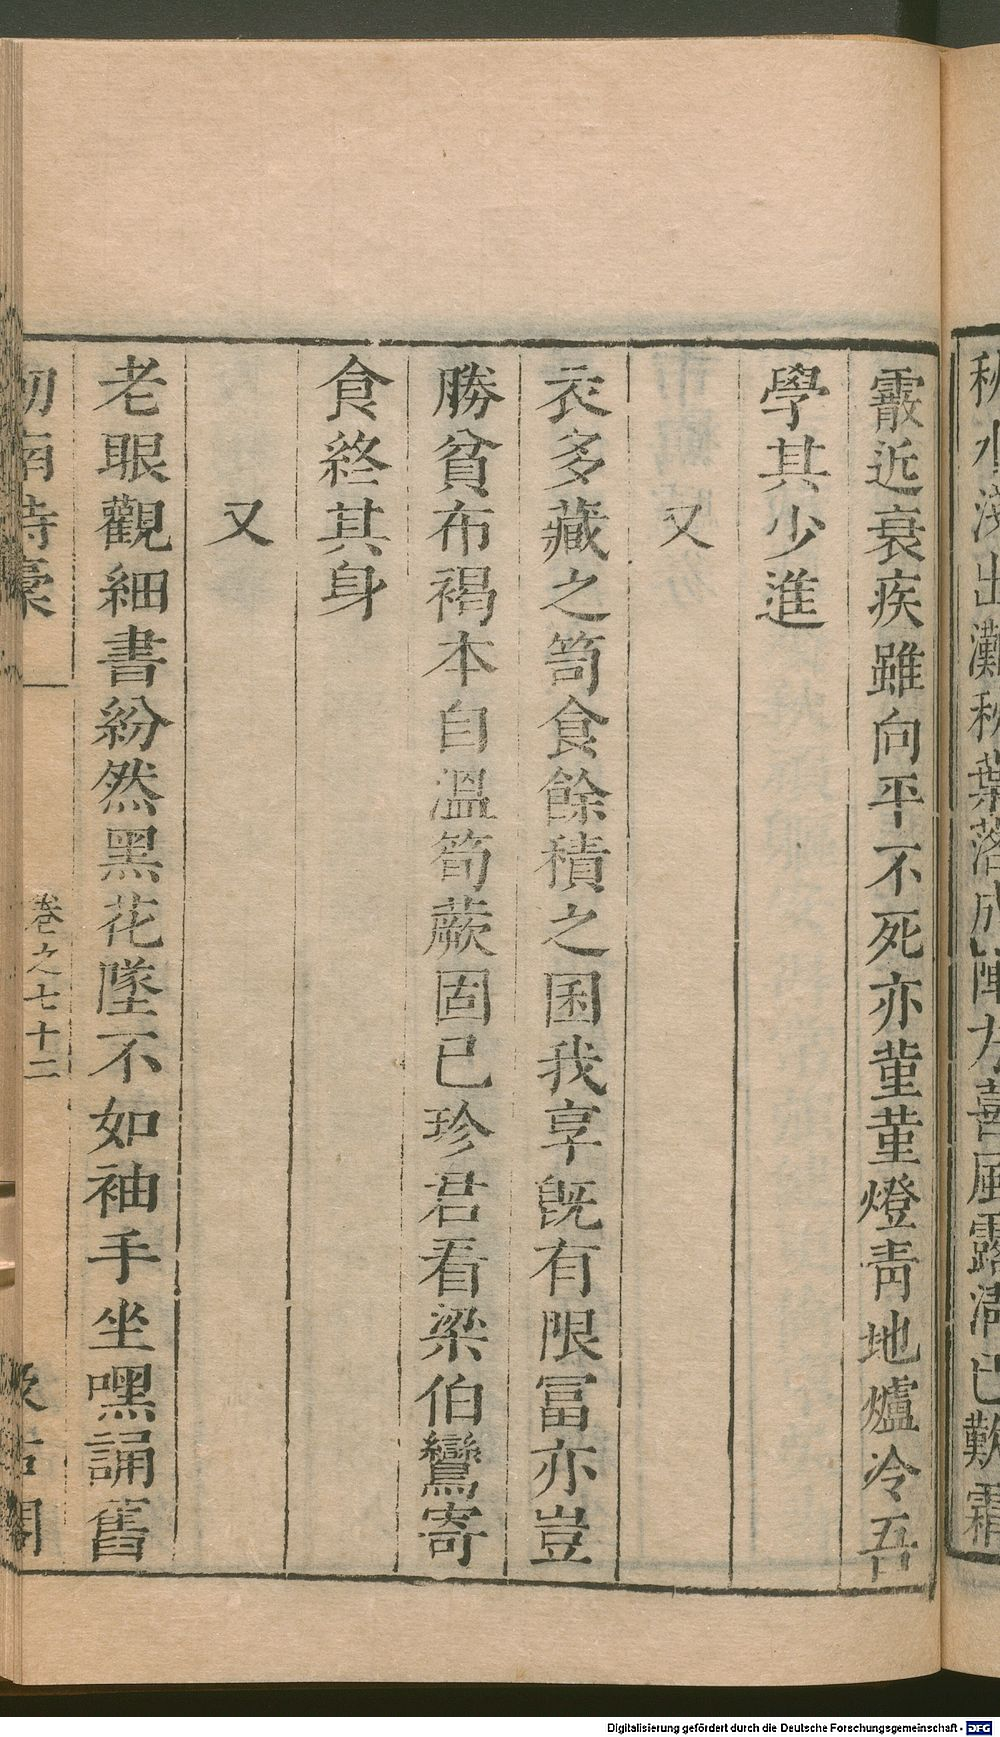 霰近衰疾雖向平不死亦菫菫燈靑地爐冷吾
學其少進
又
衣多藏之笥食餘積之囷我享旣有限冨亦豈
勝貧布褐本自溫筍蕨固已珍君看梁伯鸞寄
食終其身
又
老眼觀細書紛然黑花墜不如袖手坐嘿誦舊
南詩稾
卷之七十二
汲古閣
水淺出灘秋葉落成陣方喜風露淸已歎霜
Digitalisierung gefördert durch die Deutsche Forschungsgemeinschaft - DFG